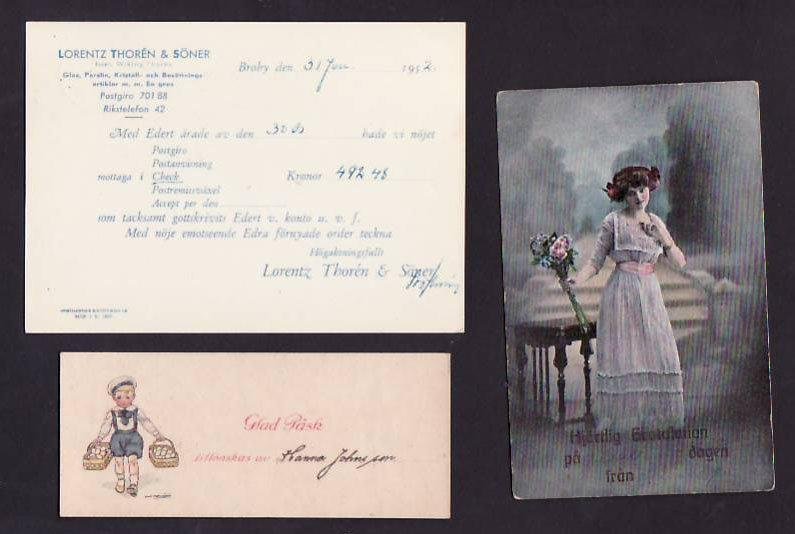 LORENTZ THORÉN & SÖNER
Glas, Porslin, Kristall- och Bosättnings-
artiklar m. m. En gros
Postgiro 70188
Rikstelefon 42
Broby den 31 Jan. 1952.
Med Edert ärade av den 30 ds hade vi nöjet
Postgiro
Postanvisning
mottaga i Check Kronor 492 48
Postremissväxel
Accept per den
som tacksamt gottskrivits Edert v. konto u. v. f.
Med nöje emotseende Edra förnyade order teckna
Högaktningsfullt
Lorentz Thorén & Söner
Glad Påsk
tillönskas av Hanna Johnsson
Hjärtlig Gratulation
på dagen
från